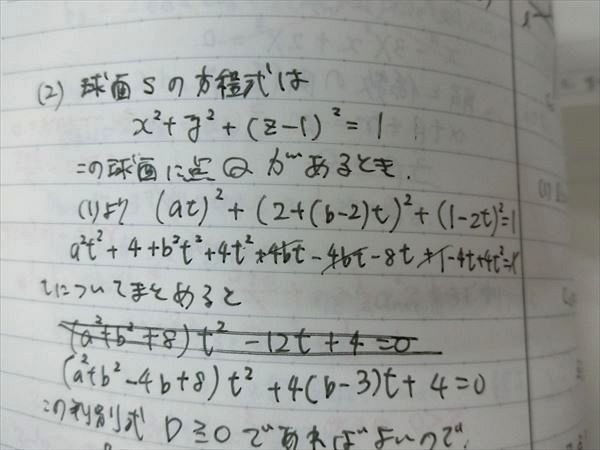 (2) 球面Sの方程式は
x²+y²+(z-1)²=1
この球面に点Qがあるとき.
(1)より (at)²+(2+(b-2)t)²+(1-2t)²=1
a²t²+4+b²t²+4t²+4bt-4bt-8t+1-4t+4t²=1
tについてまとめると
(a²+b²+8)t²-12t+4=0
(a²+b²-4b+8)t²+4(b-3)t+4=0
この判別式 D≧0であればよいので